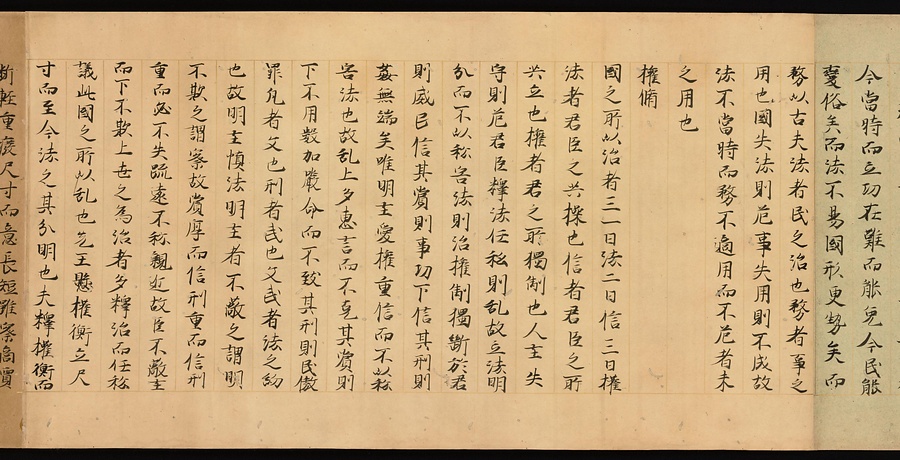 今當時而立功在難而能免今民能
變俗矣而法不易國形更勢矣而
務以古夫法者民之治也務者事之
用也國失法則危事失用則不成故
法不當時而務不適用而不危者未
之用也
權脩
國之所以治者三一曰法二曰信三曰權
法者君臣之共操也信者君臣之所
共立也權者君之所獨制也人主失
守則危君臣釋法任私則乱故立法明
分而不以私害法則治權制獨斷於君
則威民信其賞則事功下信其刑則
姦無端矣唯明主愛權重信而不以私
害法也故乱上多惠言而不克其賞則
下不用數加嚴命而不致其刑則民傲
罪凡者文也刑者武也文武者法之約
也故明主慎法明主者不蔽之謂明
不欺之謂察故賞厚而信刑重而信刑
重而必不失疏遠不私親近故臣不蔽主
而下不欺上世之為治者多釋治而任私
議此國之所以乱也先王懸權衡立尺
寸而至今法之其分明也夫釋權衡而
断輕重廢尺寸而意長短雖察商賈